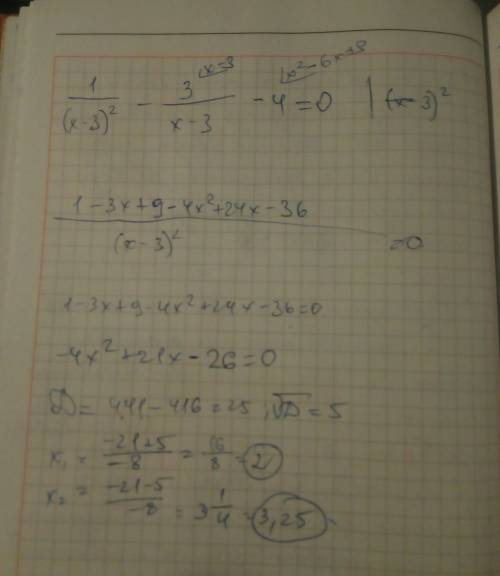 x-3 x²-6x+9
1/(x-3)² - 3/(x-3) - 4 = 0 | (x-3)²
(1-3x+9-4x²+24x-36)/(x-3)² = 0
1-3x+9-4x²+24x-36=0
-4x²+21x-26=0
D = 441-416=25, √D=5
x₁ = (-21+5)/(-8) = 16/8 = 2
x₂ = (-21-5)/(-8) = 3 1/4 = 3,25